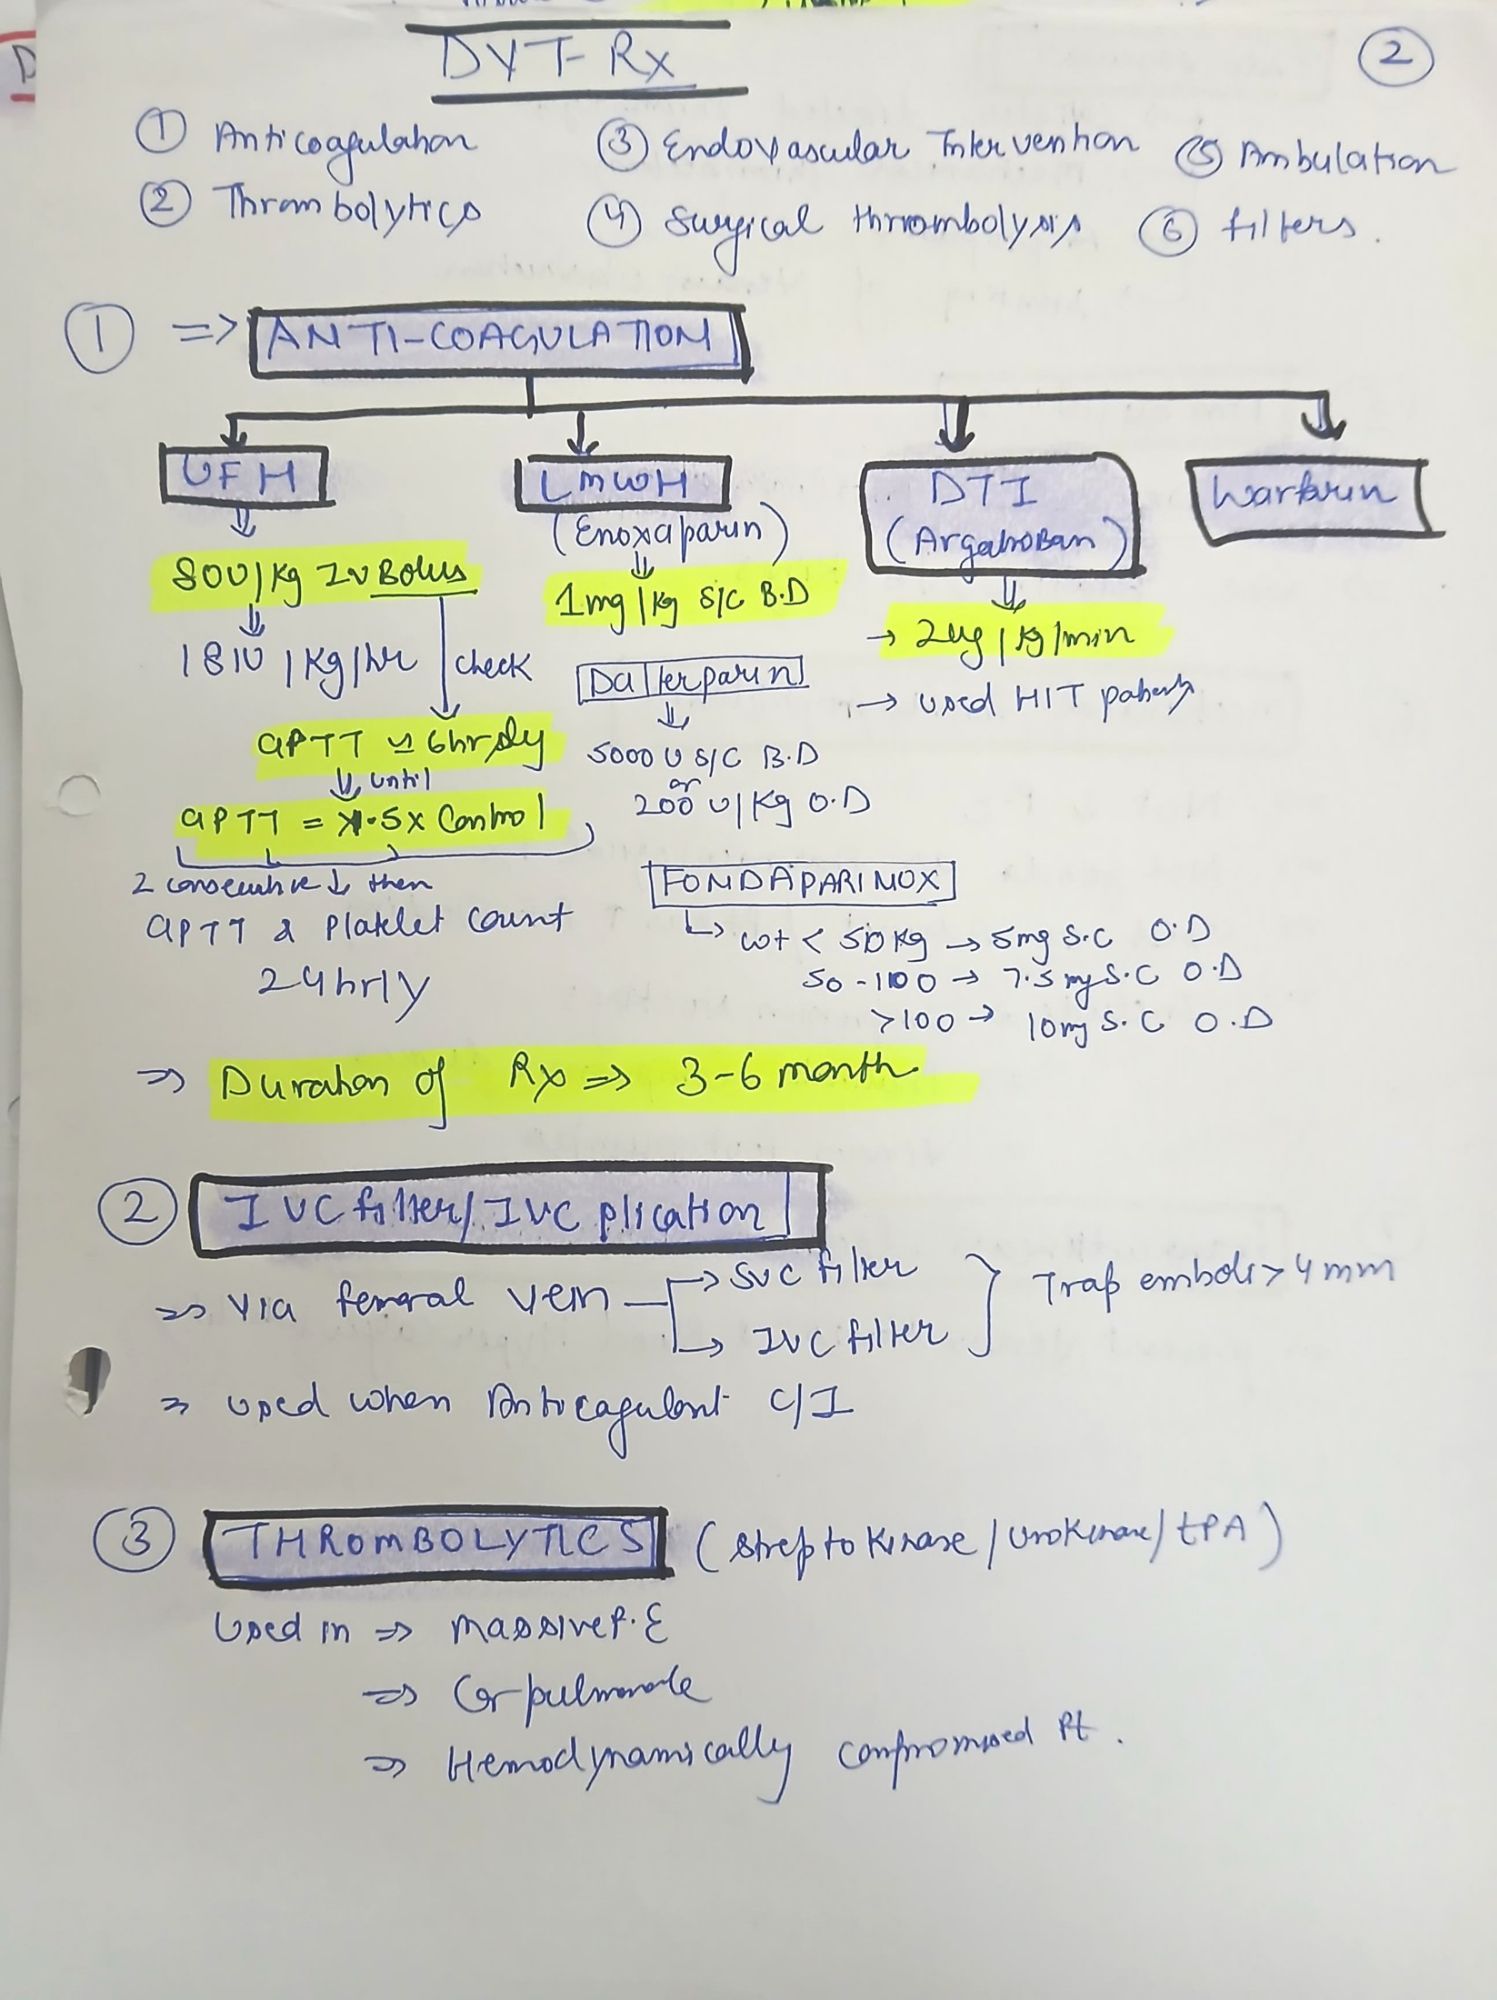 DVT Rx
2
① Anticoagulation ③ Endovascular Intervention ⑤ Ambulation
② Thrombolytics ④ Surgical thrombolysis ⑥ filters.
① => ANTI-COAGULATION
UFH LMWH DTI Warfarin
(Enoxaparin) (Argatroban)
80U/Kg IV Bolus 1mg/kg S/C B.D → 2ug/kg/min
18IU/Kg/hr check Dalterparin → used HIT patients
aPTT 6hrly 5000 U S/C B.D
until or
200 U/Kg O.D
aPTT = 1.5x Control
2 consecutive then FONDAPARINOX
aPTT & Platelet Count wt < 50 Kg → 5mg S.C O.D
24hrly 50-100 → 7.5mg S.C O.D
>100 → 10mg S.C O.D
⇒ Duration of Rx ⇒ 3-6 month
② IVC filter/IVC plication
⇒ Via femoral vein → SVC filter Trap emboli > 4mm
→ IVC filter
⇒ Used when Anticoagulant C/I
③ THROMBOLYTICS (Streptokinase/Urokinase/tPA)
Used in ⇒ Massive P.E
⇒ Cor pulmonale
⇒ Hemodynamically compromised Pt.